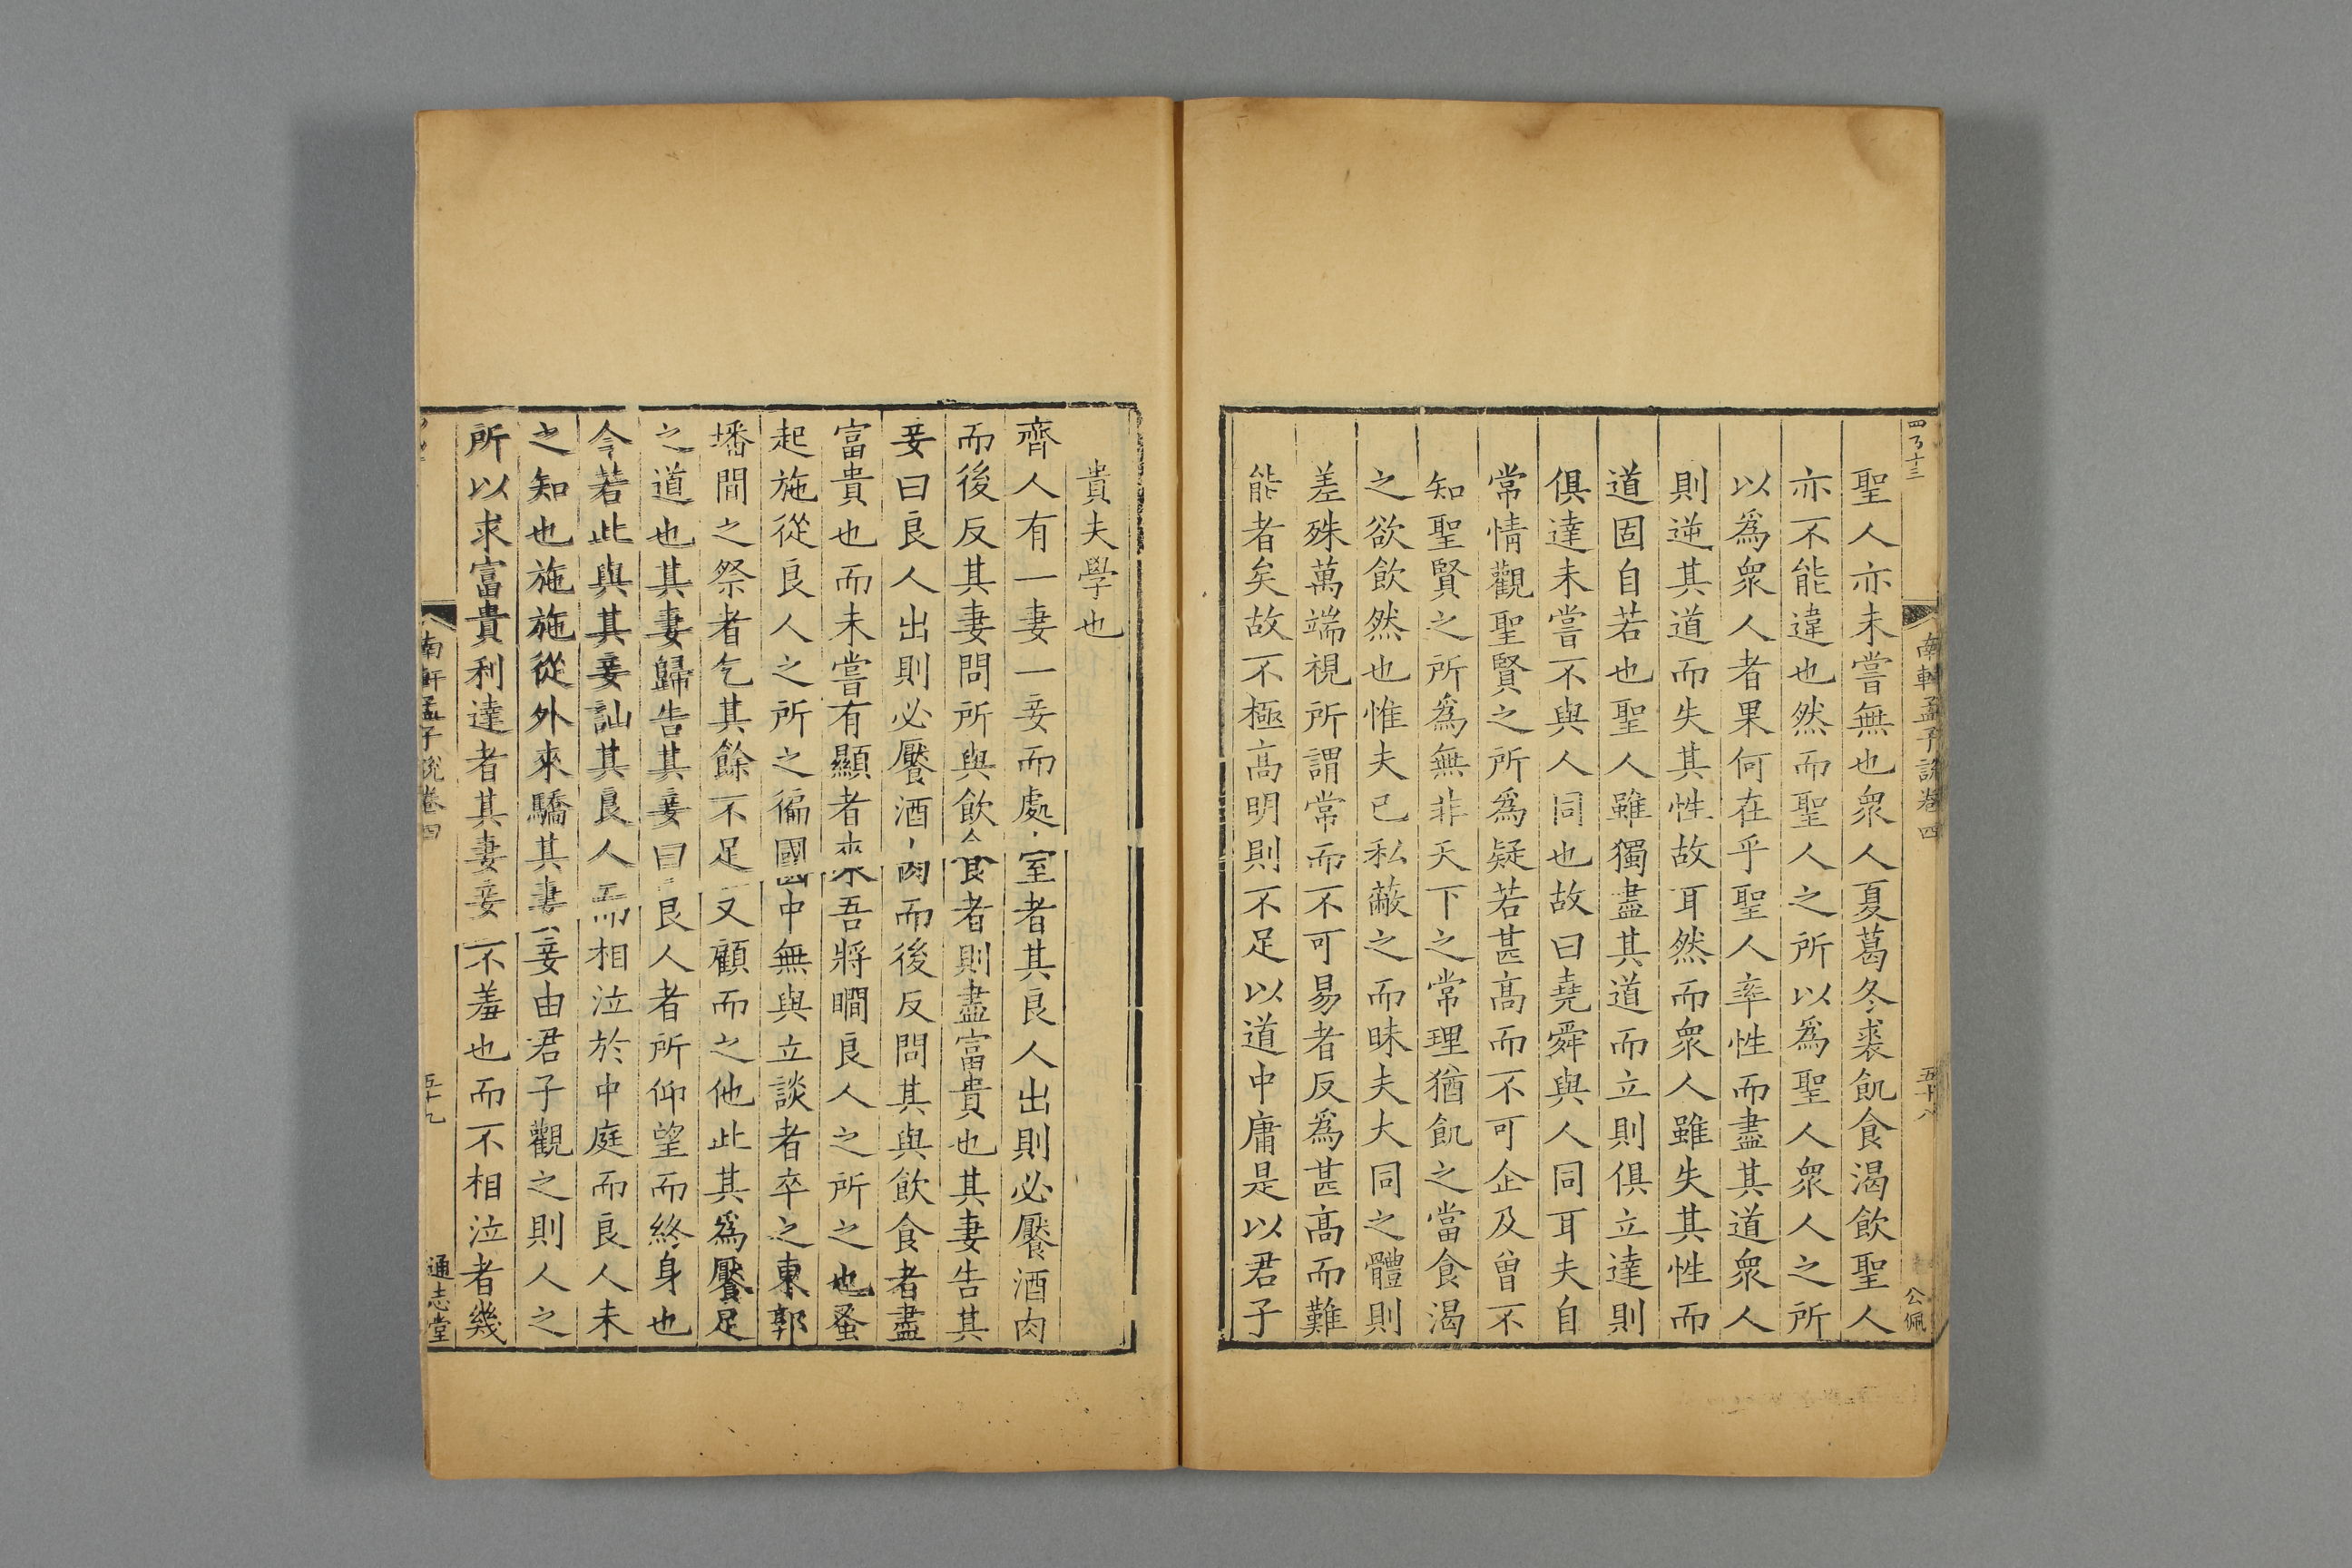 南軒孟子說卷四
五十八
公佩
聖人亦未嘗無也衆人夏葛冬裘飢食渴飲聖人
亦不能違也然而聖人之所以爲聖人衆人之所
以爲衆人者果何在乎聖人率性而盡其道衆人
則逆其道而失其性故耳然而衆人雖失其性而
道固自若也聖人雖獨盡其道而立則俱立達則
俱達未嘗不與人同也故曰堯舜與人同耳夫自
常情觀聖賢之所爲疑若甚髙而不可企及曾不
知聖賢之所爲無非天下之常理猶飢之當食渴
之欲飲然也惟夫已私蔽之而昧夫大同之體則
差殊萬端視所謂常而不可易者反爲甚髙而難
能者矣故不極髙明則不足以道中庸是以君子
貴夫學也
齊人有一妻一妾而處室者其良人出則必饜酒肉
而後反其妻問所與飲食者則盡富貴也其妻告其
妾曰良人出則必饜酒肉而後反問其與飲食者盡
富貴也而未嘗有顯者來吾將瞷良人之所之也蚤
起施從良人之所之徧國中無與立談者卒之東郭
墦間之祭者乞其餘不足又顧而之他此其爲饜足
之道也其妻歸告其妾曰良人者所仰望而終身也
今若此與其妾訕其良人而相泣於中庭而良人未
之知也施施從外來驕其妻妾由君子觀之則人之
所以求富貴利達者其妻妾不羞也而不相泣者幾
南軒孟子說卷四
五十九
通志堂